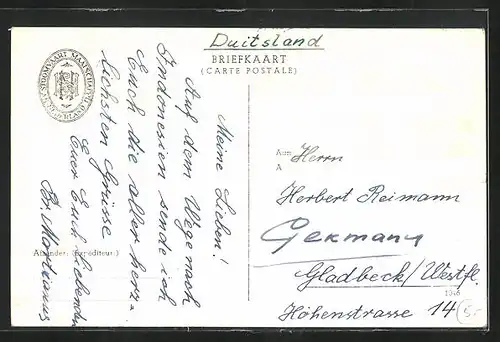 Duitsland
BRIEFKAART
(CARTE POSTALE)
STOOMVAART MAATSCHAPPIJ
Meine Lieben!
Auf dem Wege nach
Indonesien sende ich
Euch die aller herz-
lichsten Grüsse
Euer Euch liebender
Br. Martinus
Afzender: (Expéditeur:)
Aan
A
Herrn
Herbert Reimann
Germany
Gladbeck/Westfl.
Höhenstrasse 14